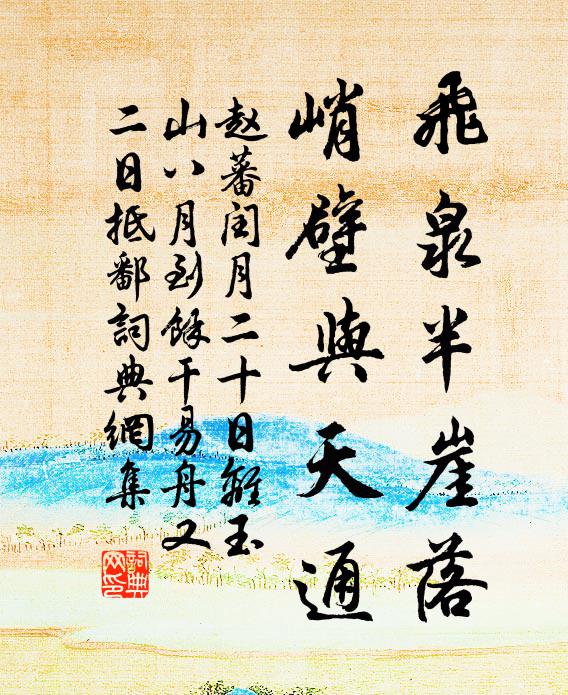 飛泉半崖落
峭壁與天通
赵蕃闰月二十日離玉
山八月到餘干易舟又
二日抵鄱詞典網集